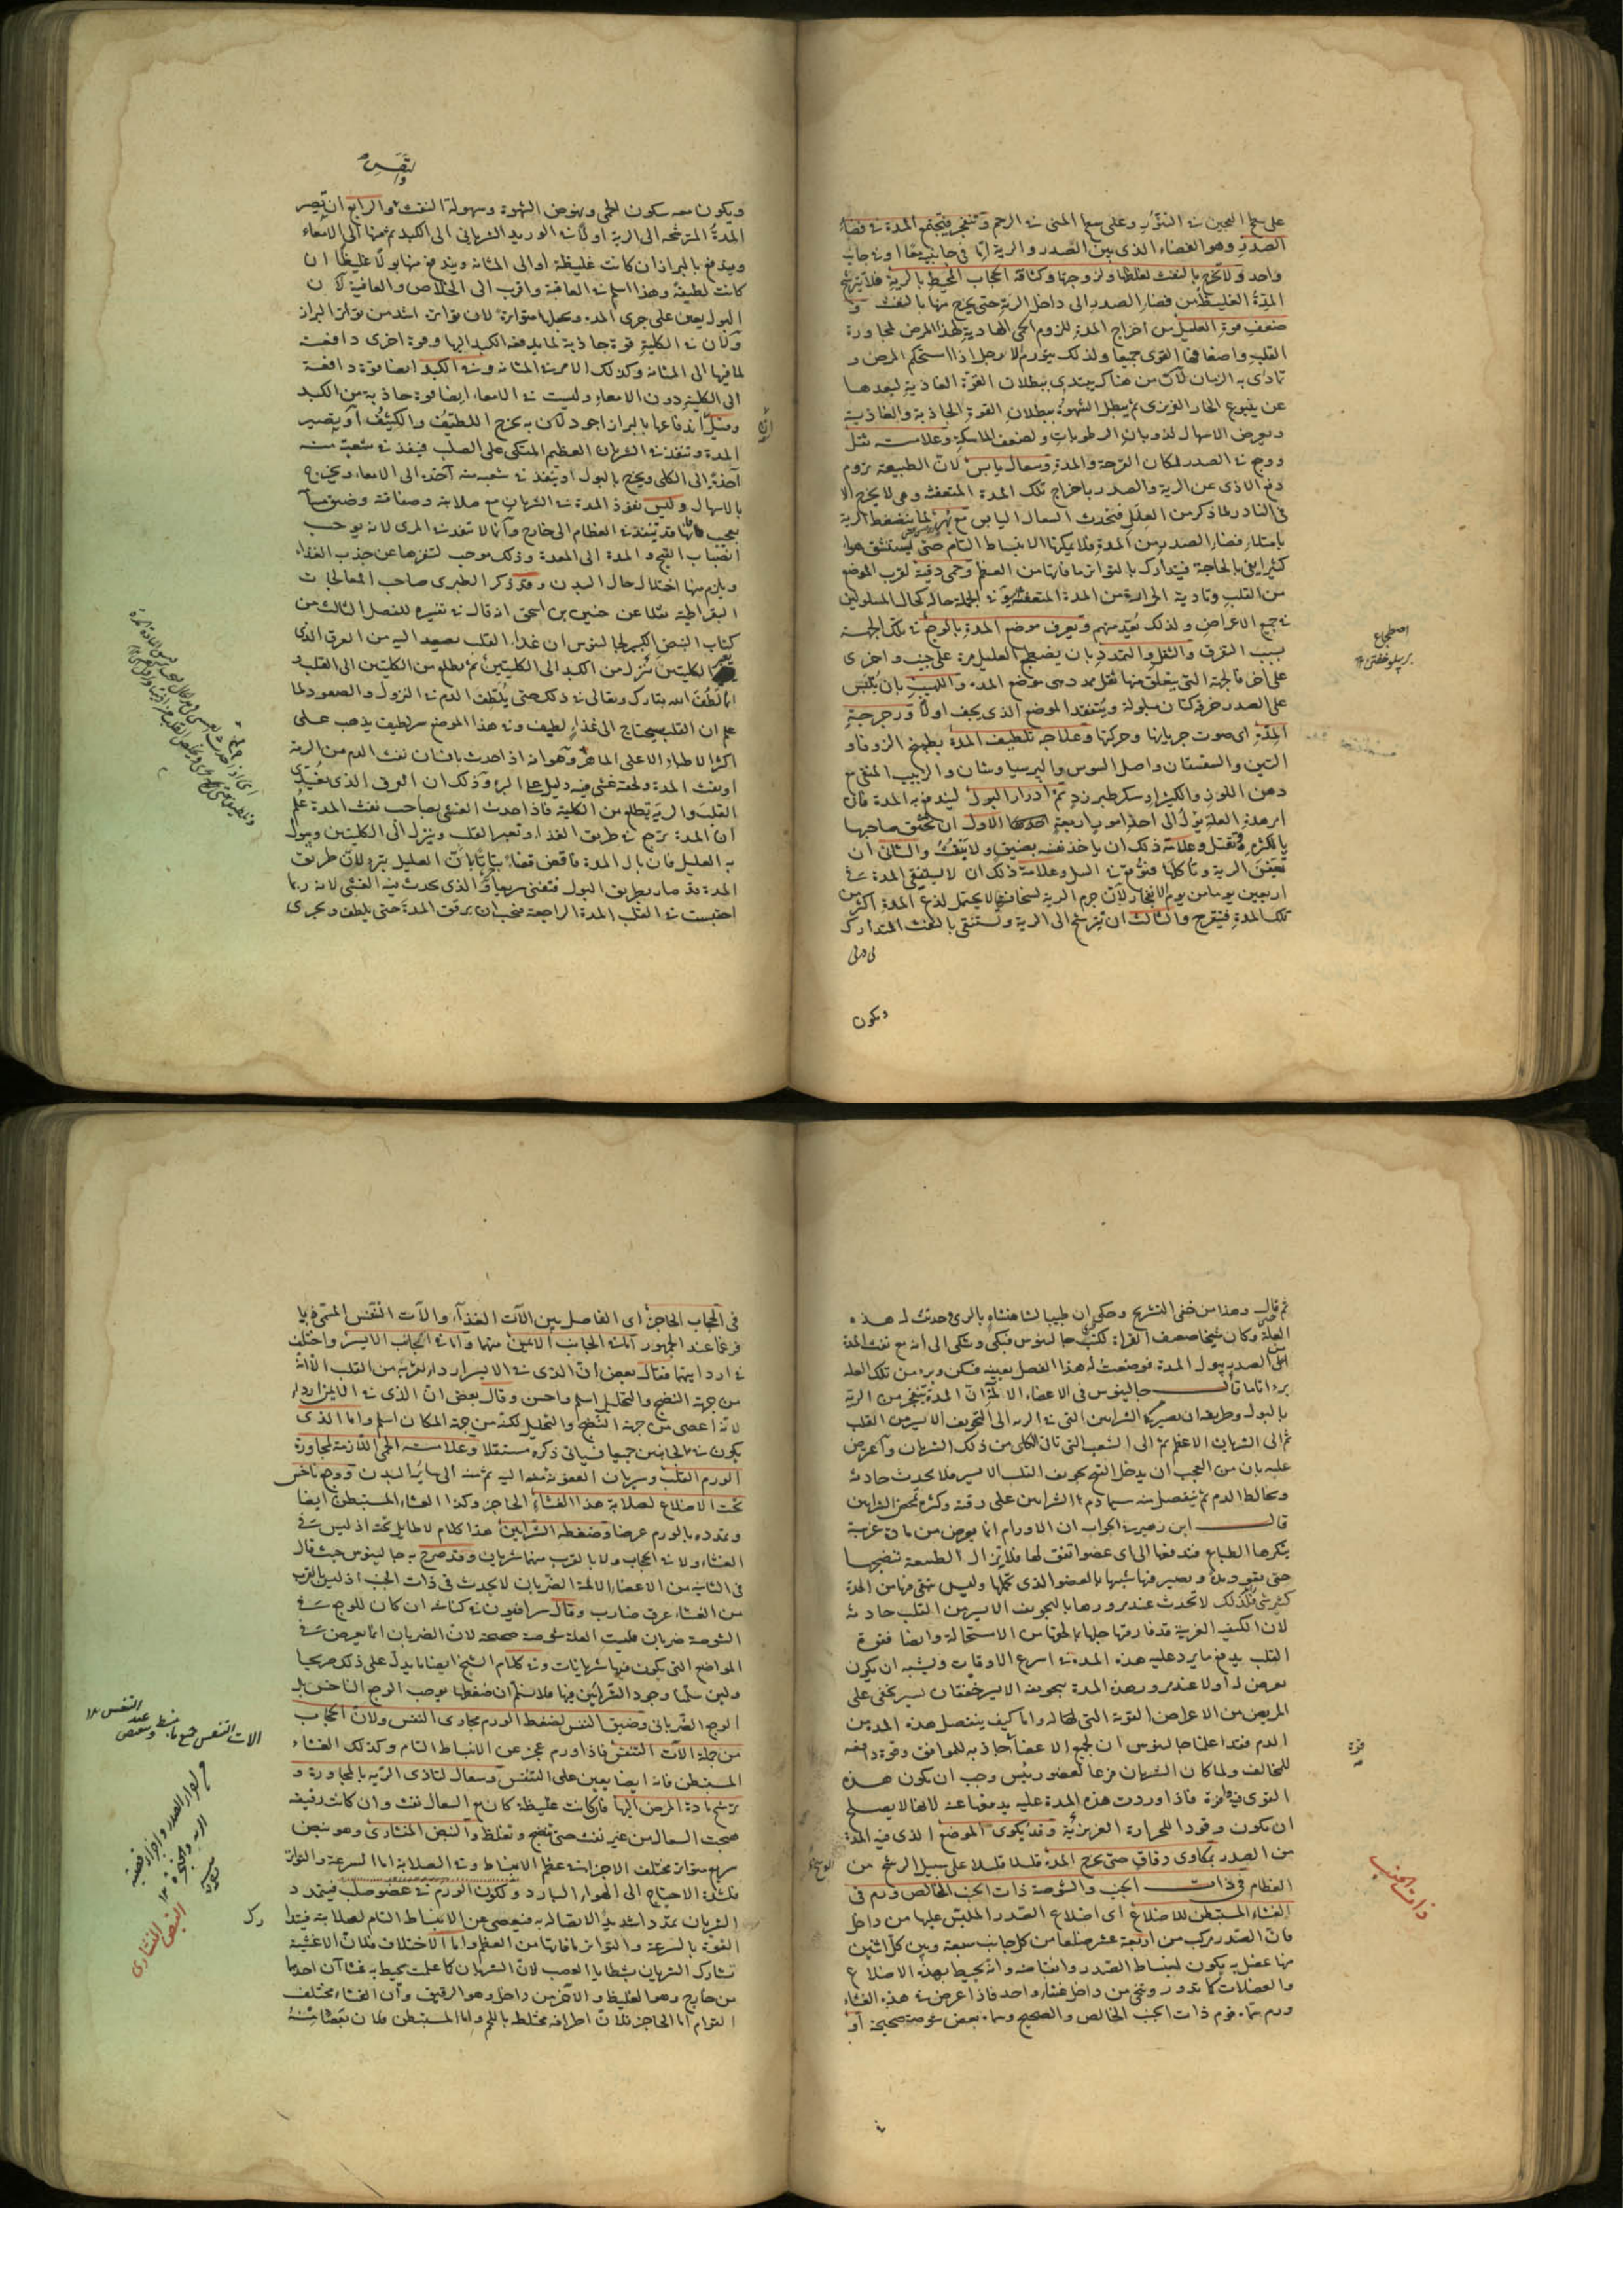 على سبيل العجين في التنور وعلى سبيل المنى في الرحم وتنفجر فيجتمع المدة في فضاء
الصدر وهو الفضاء الذى بين الصدر والرية اما فى جانبيه معا او فى جانب
واحد ولا تخرج بالنفث لغلظها ولزوجتها وكثافة الحجاب المحيط بالرية فلا تترشح
المدة الغليظة من فضاء الصدر الى داخل الرية حتى يخرج منها بالنفث و
ضعف قوة العليل من اخراج المدة للزوم الحمى الهادية لهذا المرض لمجاورة
القلب واضعافها القوى جميعا ولذلك يتورم الارجل اذا استحكم المرض و
تمادى به الزمان لان من هناك يبتدى ببطلان القوة الغاذية لبعدها
عن ينبوع الحار الغريزى ثم يبطل الشهوة ببطلان القوة الجاذبة والغاذية
ويعرض الاسهال لذوبان الرطوبات ولضعف الماسكة وعلامته ثقل
ووجع فى الصدر لمكان القرحة والمدة وسعال يابس لان الطبيعة تروم
دفع الاذى عن الرية والصدر باخراج تلك المدة المتعفنة وهى لا يخرج الا
فى النادر لما ذكر من العلل فيحدث السعال اليابس مع بهر لما ينضغط الرية
بامتلاء فضاء الصدر من المدة فلا يمكنها الانبساط التام حتى يستنشق هواء
كثيرا يفى بالحاجة فيتدارك بالتواتر ما فاتها من العظم وحمى دقية لقرب الموضع
من القلب وتادية الحرارة من المدة المتعفنة و فى الجملة حاله كحال المسلولين
فى جميع الاعراض ولذلك يعد منهم ويعرف موضع المدة بالوجع فى تلك الجهة
بسبب التفرق والثقل والتمدد بان يضطجع العليل مرة على جنب واخرى
على آخر فالجهة التى يتعلق منها ثقل ممدد هى موضع المدة واللهيب بان يلبس
على الصدر خرقة كتان مبلولة ويتفقد الموضع الذى يجف اولا ورجرجة
المدة اى صوت جريانها وحركتها وعلاجه تلطيف المدة بطبيخ الزوفا و
التين والسفستان واصل السوس والبرسياوشان والزبيب المنقى مع
دهن اللوز والكثيراء وسكر طبرزد ثم ادرار البول ليندفع به المدة فان
امر هذه العلة يؤل الى احد امور اربعة الاول ان تخنق صاحبها
بالكثرة وتقتل وعلامة ذلك ان ياخذ نفسه يضيق ولا ينفث والثانى ان
تعفن الرية وتاكلها فتوقع فى السل وعلامة ذلك ان لا يستنقى المدة فى
اربعين يوما من يوم الانفجار لان جرم الرية لسخافتها لا يحتمل لذع المدة اكثر من
تلك المدة فيتقرح والثالث ان يترشح الى الرية وتستنقى بالنفث المتدارك
ويكون
اضطجاع
بر پهلو خفتن
والنفس
ويكون معه سكون الحمى ونهوض الشهوة وسهولة النفث والرابع ان تصير
المدة المترشحة الى الرية او لا فى الوريد الشريانى الى الكبد ثم منها الى الامعاء
ويندفع بالبراز ان كانت غليظة او الى المثانة ويندفع منها بولا غليظا ان
كانت لطيفة وهذا اسلم فى العاقبة واقرب الى الخلاص والعافية لان
البول يعين على جرى المدة ويجعلها متواترة لان تواتره اشد من تواتر البراز
ولان فى الكلية قوة جاذبة لما يدفعه الكبد اليها وقوة اخرى دافعة
لما فيها الى المثانة وكذلك الامر فى المثانة وفى الكبد ايضا قوة دافعة
الى الكلية دون الامعاء وليست فى الامعاء ايضا قوة جاذبة من الكبد
وقيل اندفاعها بالبراز اجود لان به يخرج اللطيف والكثيف او يصير
المدة وتنفذ فى الشريان العظيم المتكى على الصلب فينفذ فى شعبة منه
آخذة الى الكلى ويخرج بالبول او ينفذ فى شعبة منه آخذة الى الامعاء ويخرج
بالاسهال وليس نفوذ المدة فى الشريان مع صلابته وصفاقته وضيق مسامه
بعجيب فانها قد تنفذ فى العظام الى خارج وانما لا تنفذ فى المرى لانه يوجب
انصباب القيح والمدة الى المعدة وذلك موجب لتنفرها عن جذب الغذاء
ويلزم منها اختلال حال البدن وقد ذكر الطبرى صاحب المعالجات
البقراطية نقلا عن حنين بن اسحق انه قال فى تفسيره للفصل الثالث من
كتاب النبض الكبير لجالينوس ان غذاء القلب يصعد اليه من العرق الذى
الكليتين تنزل من الكبد الى الكليتين ثم يطلع من الكليتين الى القلب
انما لطف الله تبارك وتعالى فى ذلك حتى يلطف الدم فى النزول والصعود لما
علم ان القلب يحتاج الى غذاء لطيف وفى هذا الموضع سر لطيف يذهب على
اكثر الاطباء الا على الماهر وهو انه اذا حدث بانسان نفث الدم من الرية
او نفث المدة ولحقه غشى فيه دليل على البرء وذلك ان العرق الذى يغذى
القلب والرية يطلع من الكلية فاذا حدث الغشى بصاحب نفث المدة علم
ان المدة ترجع فى طريق الغذاء وتعبر القلب وينزل الى الكليتين ويبول
به العليل فان بال المدة فاقض قضاء بتاتا بان العليل يبرء لان طريق
المدة قد صار بطريق البول فتفنى سريعا والذى يحدث فيه الغشى لانه ربما
احتبست فى القلب المدة الراجعة فيجب ان ترقق المدة حتى يلطف ويجرى
ثم قال وهذا من خفى التشريح وحكى ان طبيبا لشاهنشاه بالرى وحدث له هذه
العلة وكان شيخا ضعيف القراءة لكتب جالينوس فبكى وشكى الى انه مع نفث المدة
من الصدر يبول المدة فوضعت له هذا الفصل بعينه فسكن وبرء من تلك العلة
برءا تاما قال جالينوس فى الاعضاء الالمة ان المدة تنفجر من الرية
بالبول وطريقه ان يصير الى الشرايين التى فى الرية الى التجويف الايسر من القلب
ثم الى الشريان الاعظم ثم الى الشعب التى تاتى الكلى من ذلك الشريان واعترض
عليه بان من العجب ان يدخل القيح تجويف القلب الايسر فلا يحدث حادثة
ويخالط الدم ثم ينفصل منه سيما دم الشرايين على رقته وكثرة تمخض الشرايين
قال ابن زهير فى الجواب ان الاورام انما يعرض من مادة غريبة
ينكرها الطباع فتدفعها الى اى عضو اتفق لها فلا يزال الطبيعة تنضجها
حتى يعود مدة ويصير فيها شبها بالعضو الذى تحملها وليس يبقى فيها من الحدة
كثير شى فلذلك لا تحدث عند مرورها بالتجويف الايسر من القلب حادثة
لان الكيفية الغريبة قد فارقتها جلها بما لحقها من الاستحالة وايضا فقوة
القلب يدفع ما يرد عليه هذه المدة فى اسرع الاوقات ويشبه ان يكون
يعرض له اولا عند مرور هذه المدة بتجويفه الايسر خفقان يسير يخفى على
المريض من الاعراض القوية التى لها له واما كيف ينفصل هذه المدة من
الدم فقد اعلمنا جالينوس ان لجميع الاعضاء جاذبة للموافق وقوة دافعة
للمخالف ولما كان الشريان فرعا لعضو رئيس وجب ان يكون هذه
القوى فيه وافرة فاذا وردت هذه المدة عليه يدفعها عنه لانها لا يصلح
ان يكون وقودا للحرارة الغريزية وقد يكوى الموضع الذى فيه المدة
من الصدر بمكاوى دقاق حتى يخرج المدة قليلا قليلا على سبيل الرشح من
العظام فى ذات الجنب والشوصة ذات الجنب الخالص ورم فى
الغشاء المستبطن للاضلاع اى اضلاع الصدر الملبس عليها من داخل
فان الصدر مركب من اربعة عشر ضلعا من كل جانب سبعة وبين كل اثنين
منها عضل به يكون انبساط الصدر وانقباضه وانه يحيط بهذه الاضلاع
والعضلات كما تدور وتنحى من داخل غشاء واحد فاذا عرض فى هذا الغشاء
ورم سماه قوم ذات الجنب الخالص والصحيح وسماه بعض شوصة صحيحة او
ذات الجنب
فى الحجاب الحاجز اى الفاصل بين الآت الغذاء والآت التنفس المسمى
فرغما عند الجمهور اما فى الجانب الايمن منهما واما فى الجانب الايسر واختلف
فى اردايهما فقال بعض ان الذى فى الايسر اردا لقربه من القلب الا انه
من جهة النضج والتحليل اسلم واحسن وقال بعض ان الذى فى الايمن اردا
لانه اعصى من جهة النضج والتحليل لكنه من جهة المكان اسلم واما الذى
يكون فى الجانبين جميعا فياتى ذكره مستقلا وعلامته الحمى اللازمة لمجاورة
الورم القلب وسريان العفونة منه اليه ثم منه الى سائر البدن ووجع ناخس
تحت الاضلاع لصلابة هذا الغشاء الحاجز وكذا الغشاء المستبطن ايضا
وتمدده بالورم عرضا وضغطه الشرايين هذا كلام لا طايل تحته اذ ليس فى
الغشاء ولا فى الحجاب ولا بالقرب منهما شريان وقد صرح به جالينوس حيث قال
فى الثانية من الاعضاء الالمة الضربان لا يحدث فى ذات الجنب اذ ليس بالقرب
من الغشاء عرق ضارب وقال سرافيون فى كناشه ان كان للوجع فى
الشوصة ضربان فليست العلة شوصة صحيحة لان الضربان انما يعرض فى
المواضع التى يكون فيها شريانات وفى كلام الشيخ ايضا ما يدل على ذلك صريحا
ولئن سلمنا وجود الشرائين فيها فلا نسلم ان ضغطها يوجب الوجع الناخس بل
الوجع الضربانى وضيق النفس لضغط الورم مجارى النفس ولان الحجاب
من جملة الآت التنفس فاذا ورم عجز عن الانبساط التام وكذلك الغشاء
المستبطن فانه ايضا يعين على التنفس وسعال لتاذى الرية بالمجاورة و
ترشح مادة المرض اليها فان كانت غليظة كان مع السعال نفث وان كانت رقيقة
صحبت السعال من غير نفث حتى تنضج وتغلظ والنبض المنشارى وهو نبض
سريع متواتر مختلف الاجزاء فى عظم الانبساط وفى الصلابة اما السرعة والتواتر
فلشدة الاحتياج الى الهواء البارد ولكون الورم فى عضو صلب فيتمدد
الشريان تمددا شديدا لاتصاله به فيعصى عن الانبساط التام لصلابته فيتدارك
القوة بالسرعة والتواتر ما فاتها من العظم واما الاختلاف فلان الاغشية
تشارك الشريان بشظايا العصب لان الشريان كما علمت يحيط به غشاآن احدهما
من خارج وهو الغليظ والآخر من داخل وهو الرقيق وان الغشاء مختلف
القوام اما الحاجز فلان اطرافه مختلط باللحم واما المستبطن فلان بعضا منه
النبض المنشارى